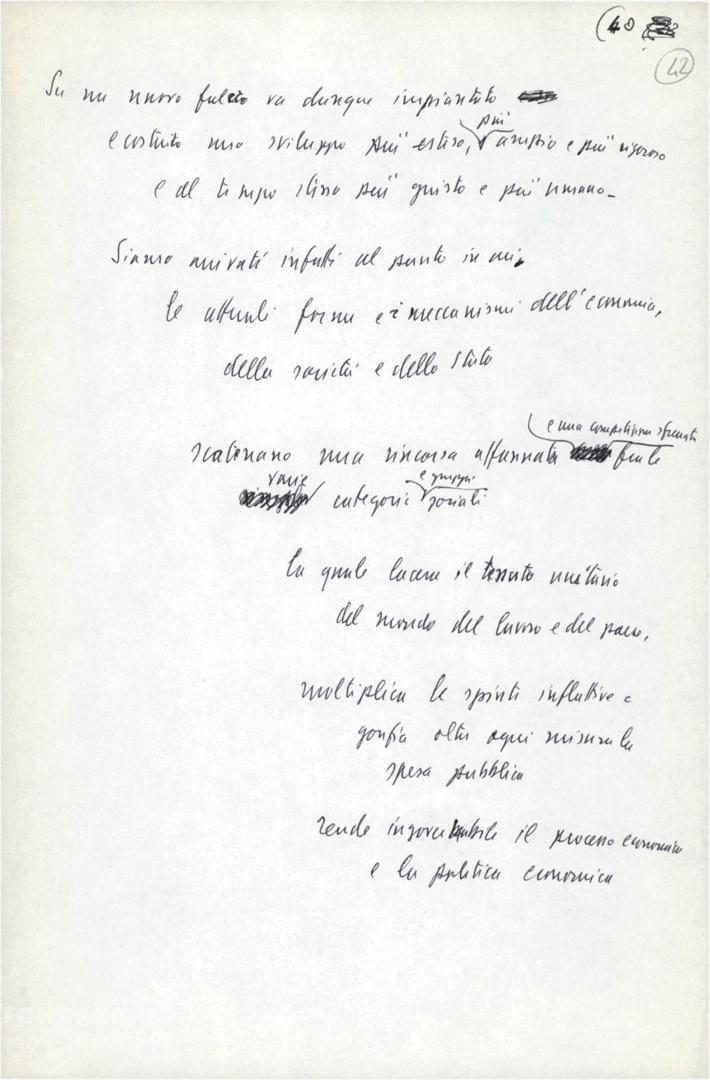 (40
42
Su un nuovo fulcro va dunque impiantato
più
e costruito uno sviluppo più esteso, ampio e più rigoroso
e al tempo stesso più giusto e più umano_
Siamo arrivati infatti al punto in cui,
le attuali forme e i meccanismi dell'economia,
della società e dello Stato
e una competizione sfrenata
scatenano una rincorsa affannata fra le
varie e gruppi
categorie sociali
la quale lacera il tessuto unitario
del mondo del lavoro e del paese,
moltiplica le spinte inflattive e
gonfia oltre ogni misura la
spesa pubblica
rende ingovernabile il processo economico
e la politica economica